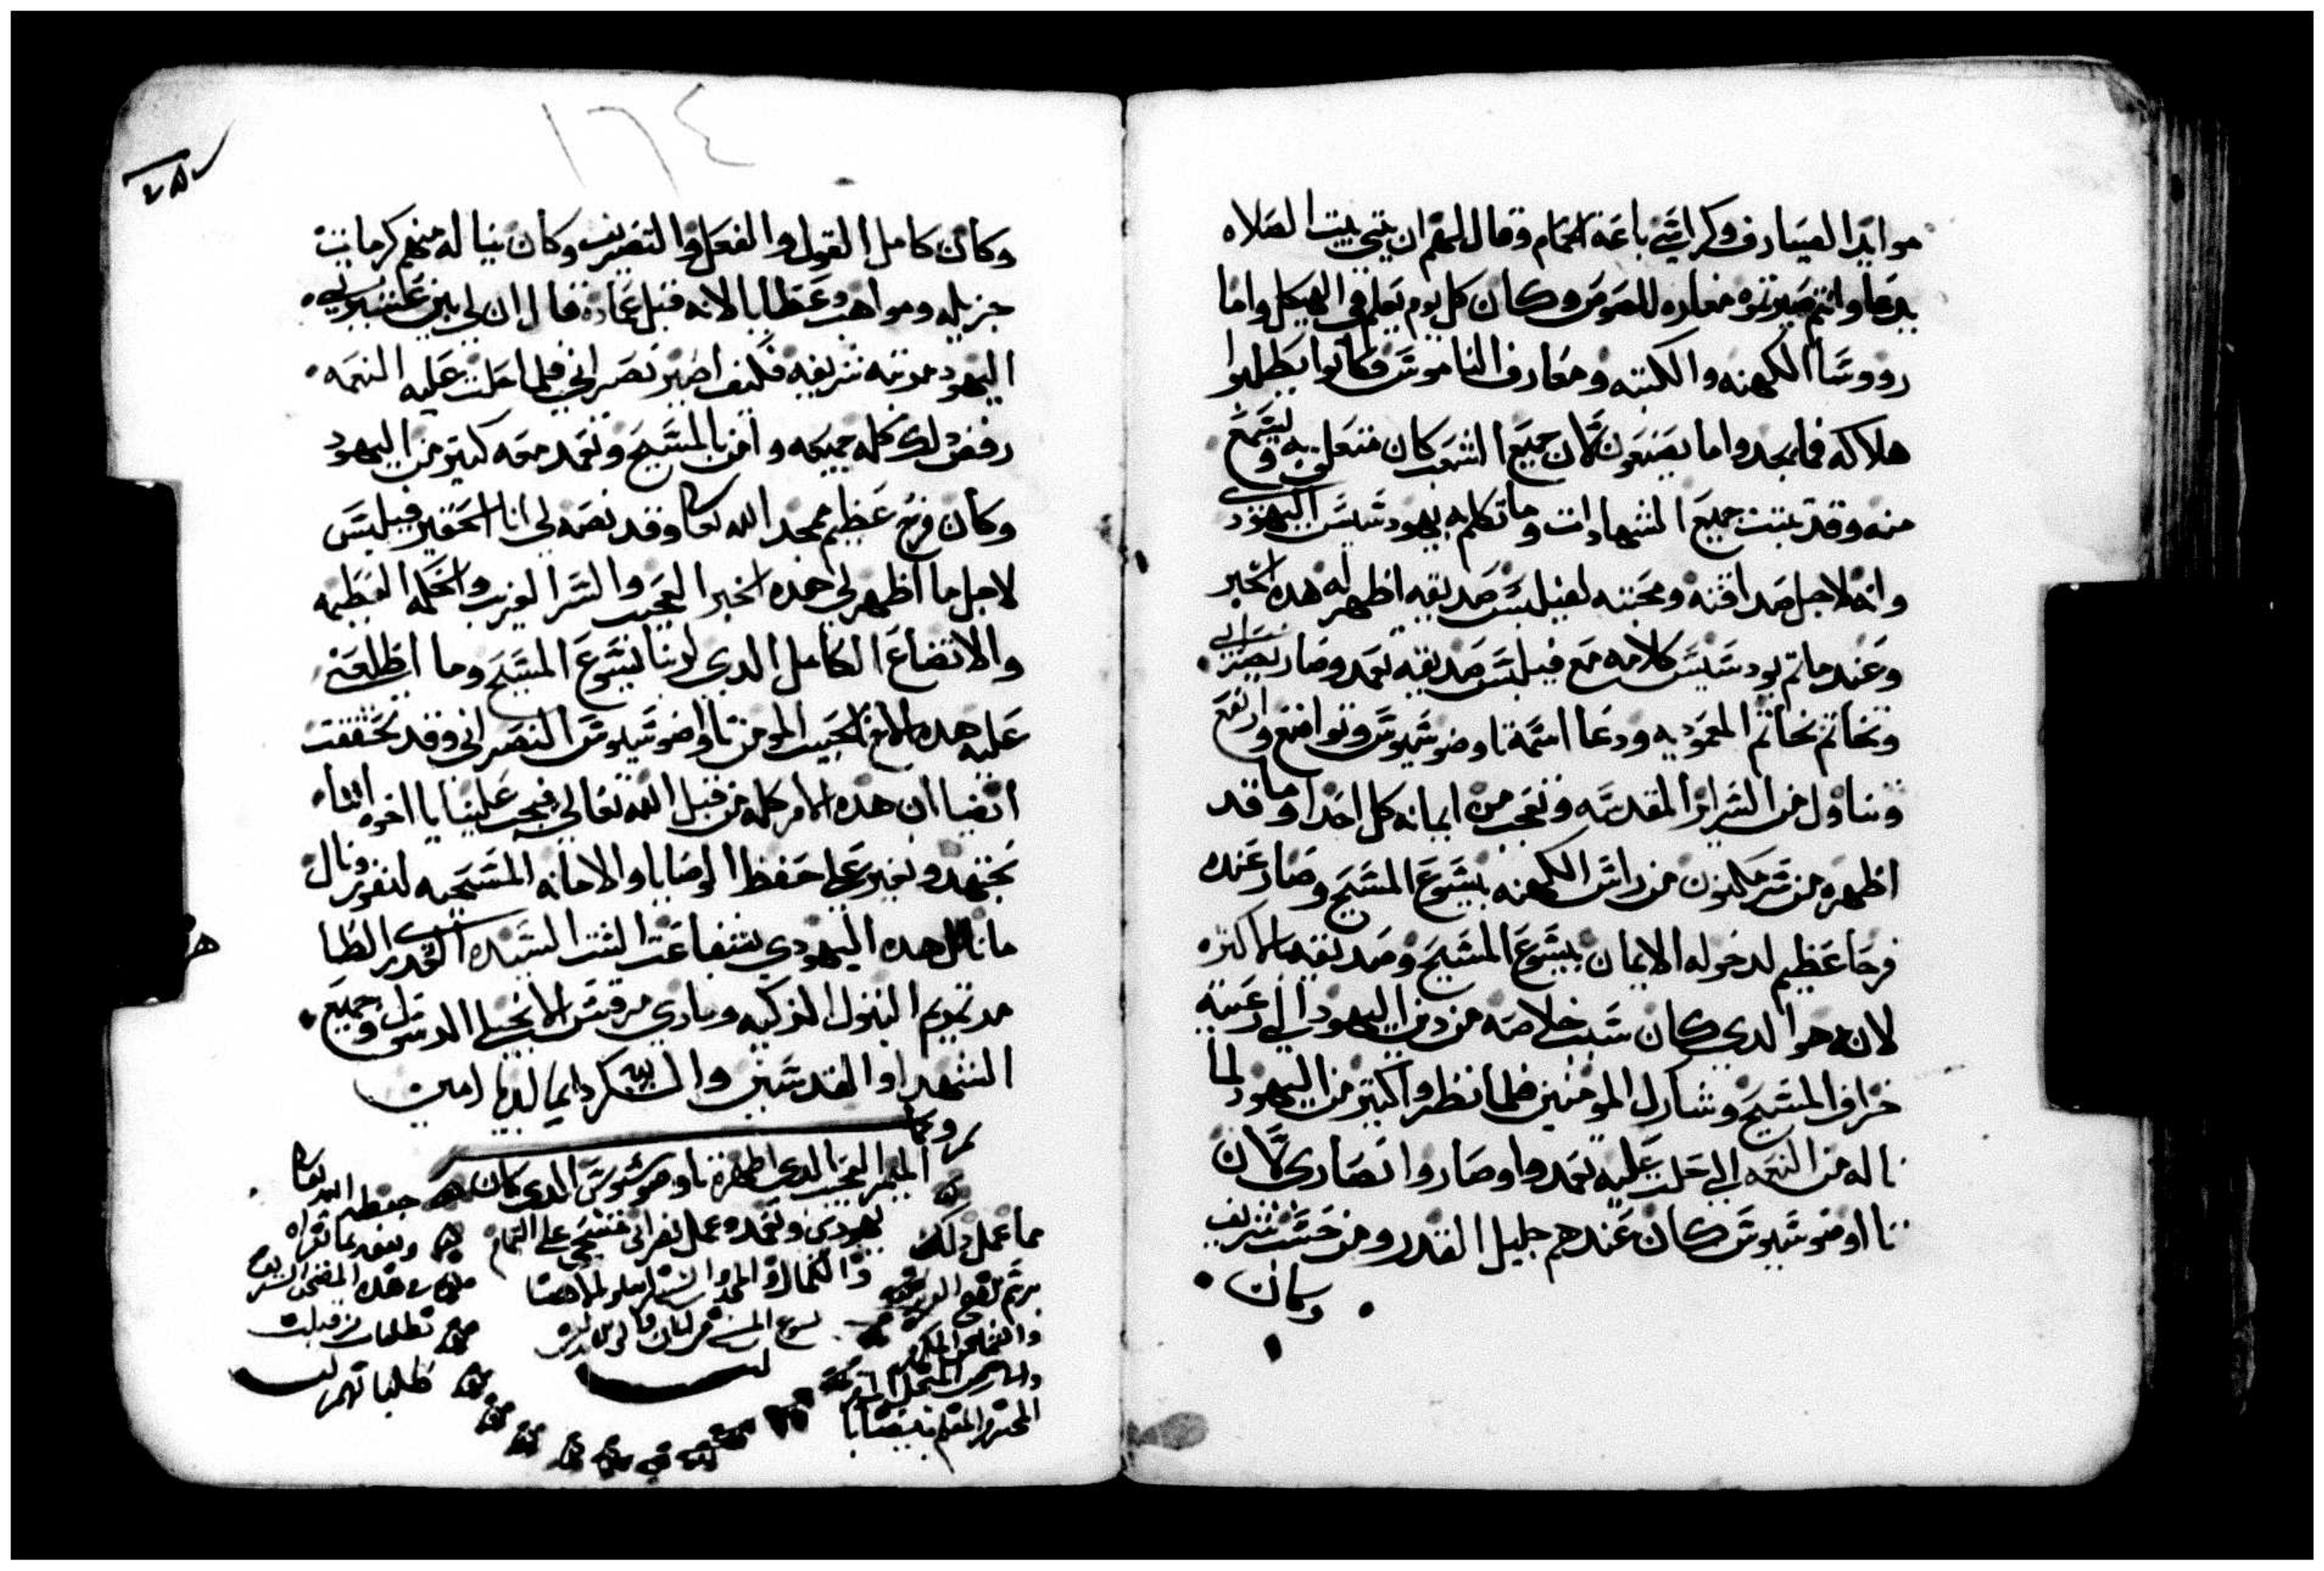 موايد الصيارف وكراسي باعة الحمام وقال لهم ان بيتي بيت الصلاه
يدعا وانتم صيرتوه مغاره للصوص وكان كل يوم يعلم في الهيكل واما
رووسا الكهنه والكتبه ومعارف الناموس فكانوا يطلبوا
هلاكه فما يجدوا ما يصنعون لان جميع الشعب كان متعلق به ويسمع
منه وقد ثبتت جميع الشهادات وما تكلم به يهود شيس اليهودي
وانه لاجل صداقته ومحبته لفيلبس صديقه اظهر له هده الخبر
وعند ما تم يود سيس كلامه مع فيلبس صديقه تعمد وصار نصراني
وتخاتم بخاتم المعموديه ودعا اسمه تاوضوسيوس وتواضع وارتفع
وتناول من السراير المقدسه وتعجب من ايمانه كل احدا وما قد
اظهره من سر مكنون من راس الكهنه بيسوع المسيح وصار عنده
فرحا عظيم لدخوله الايمان بيسوع المسيح وصديقه بالاكثره
لانه هوا الدي كان سبب خلاصه من دين اليهود الي رعيته
خراف المسيح وشارك المومنين فلما نظروا كتير من اليهود لما
ناله من النعمه الي حلت عليه تعمدوا وصاروا نصاري لان
تااوضوسيوس كان عندهم جليل القدر ومن حسب شريف
وكان
١٦٤
وكان كامل القول والفعل والتصريف وكان ينا له منهم كرمات
جزيله ومواهب وعطايا لانه قبل عماده قال ان لي بين عشيرتي
اليهود مرتبه شريفه فكيف اصير نصراني فلما حلت عليه النعمه
رفض دلك كله جميعه وامن بالمسيح وتعمد معه كتير من اليهود
وكان فرح عظيم بمجد الله تعالى وقد نصه لي انا الحقير فيلبس
لاجل ما اظهر لي هده الخبر العجيب والسر الغريب والحكمه العظيمه
والاتضاع الكامل الدي لربنا يسوع المسيح وما اطلعني
عليه هده الاخ الحبيب المومن تااوضوسيوس النصراني وقد تحققت
ايضا ان هده الامر كله من قبل الله تعالي فيجب علينا يا اخوه اننا
نجتهد ونغير علي حفظ الوصايا والامانه المسيحيه لنفوز وننال
ما نال هده اليهودي بشفاعت الست السيده القديسه الطا
هره مرتمريم البتول الزكيه ومارى مرقس الانجيلي الرسول وجميع
الشهدا والقديسين والشكر لله دايما ابديا امين
الميمر العجيب الدي اظهره تاوضوسيوس الدي كان
يهودي وتعمده عمل نصراني مسيحي علي التمام
مما عمل دلك
حفظه الله تعالى